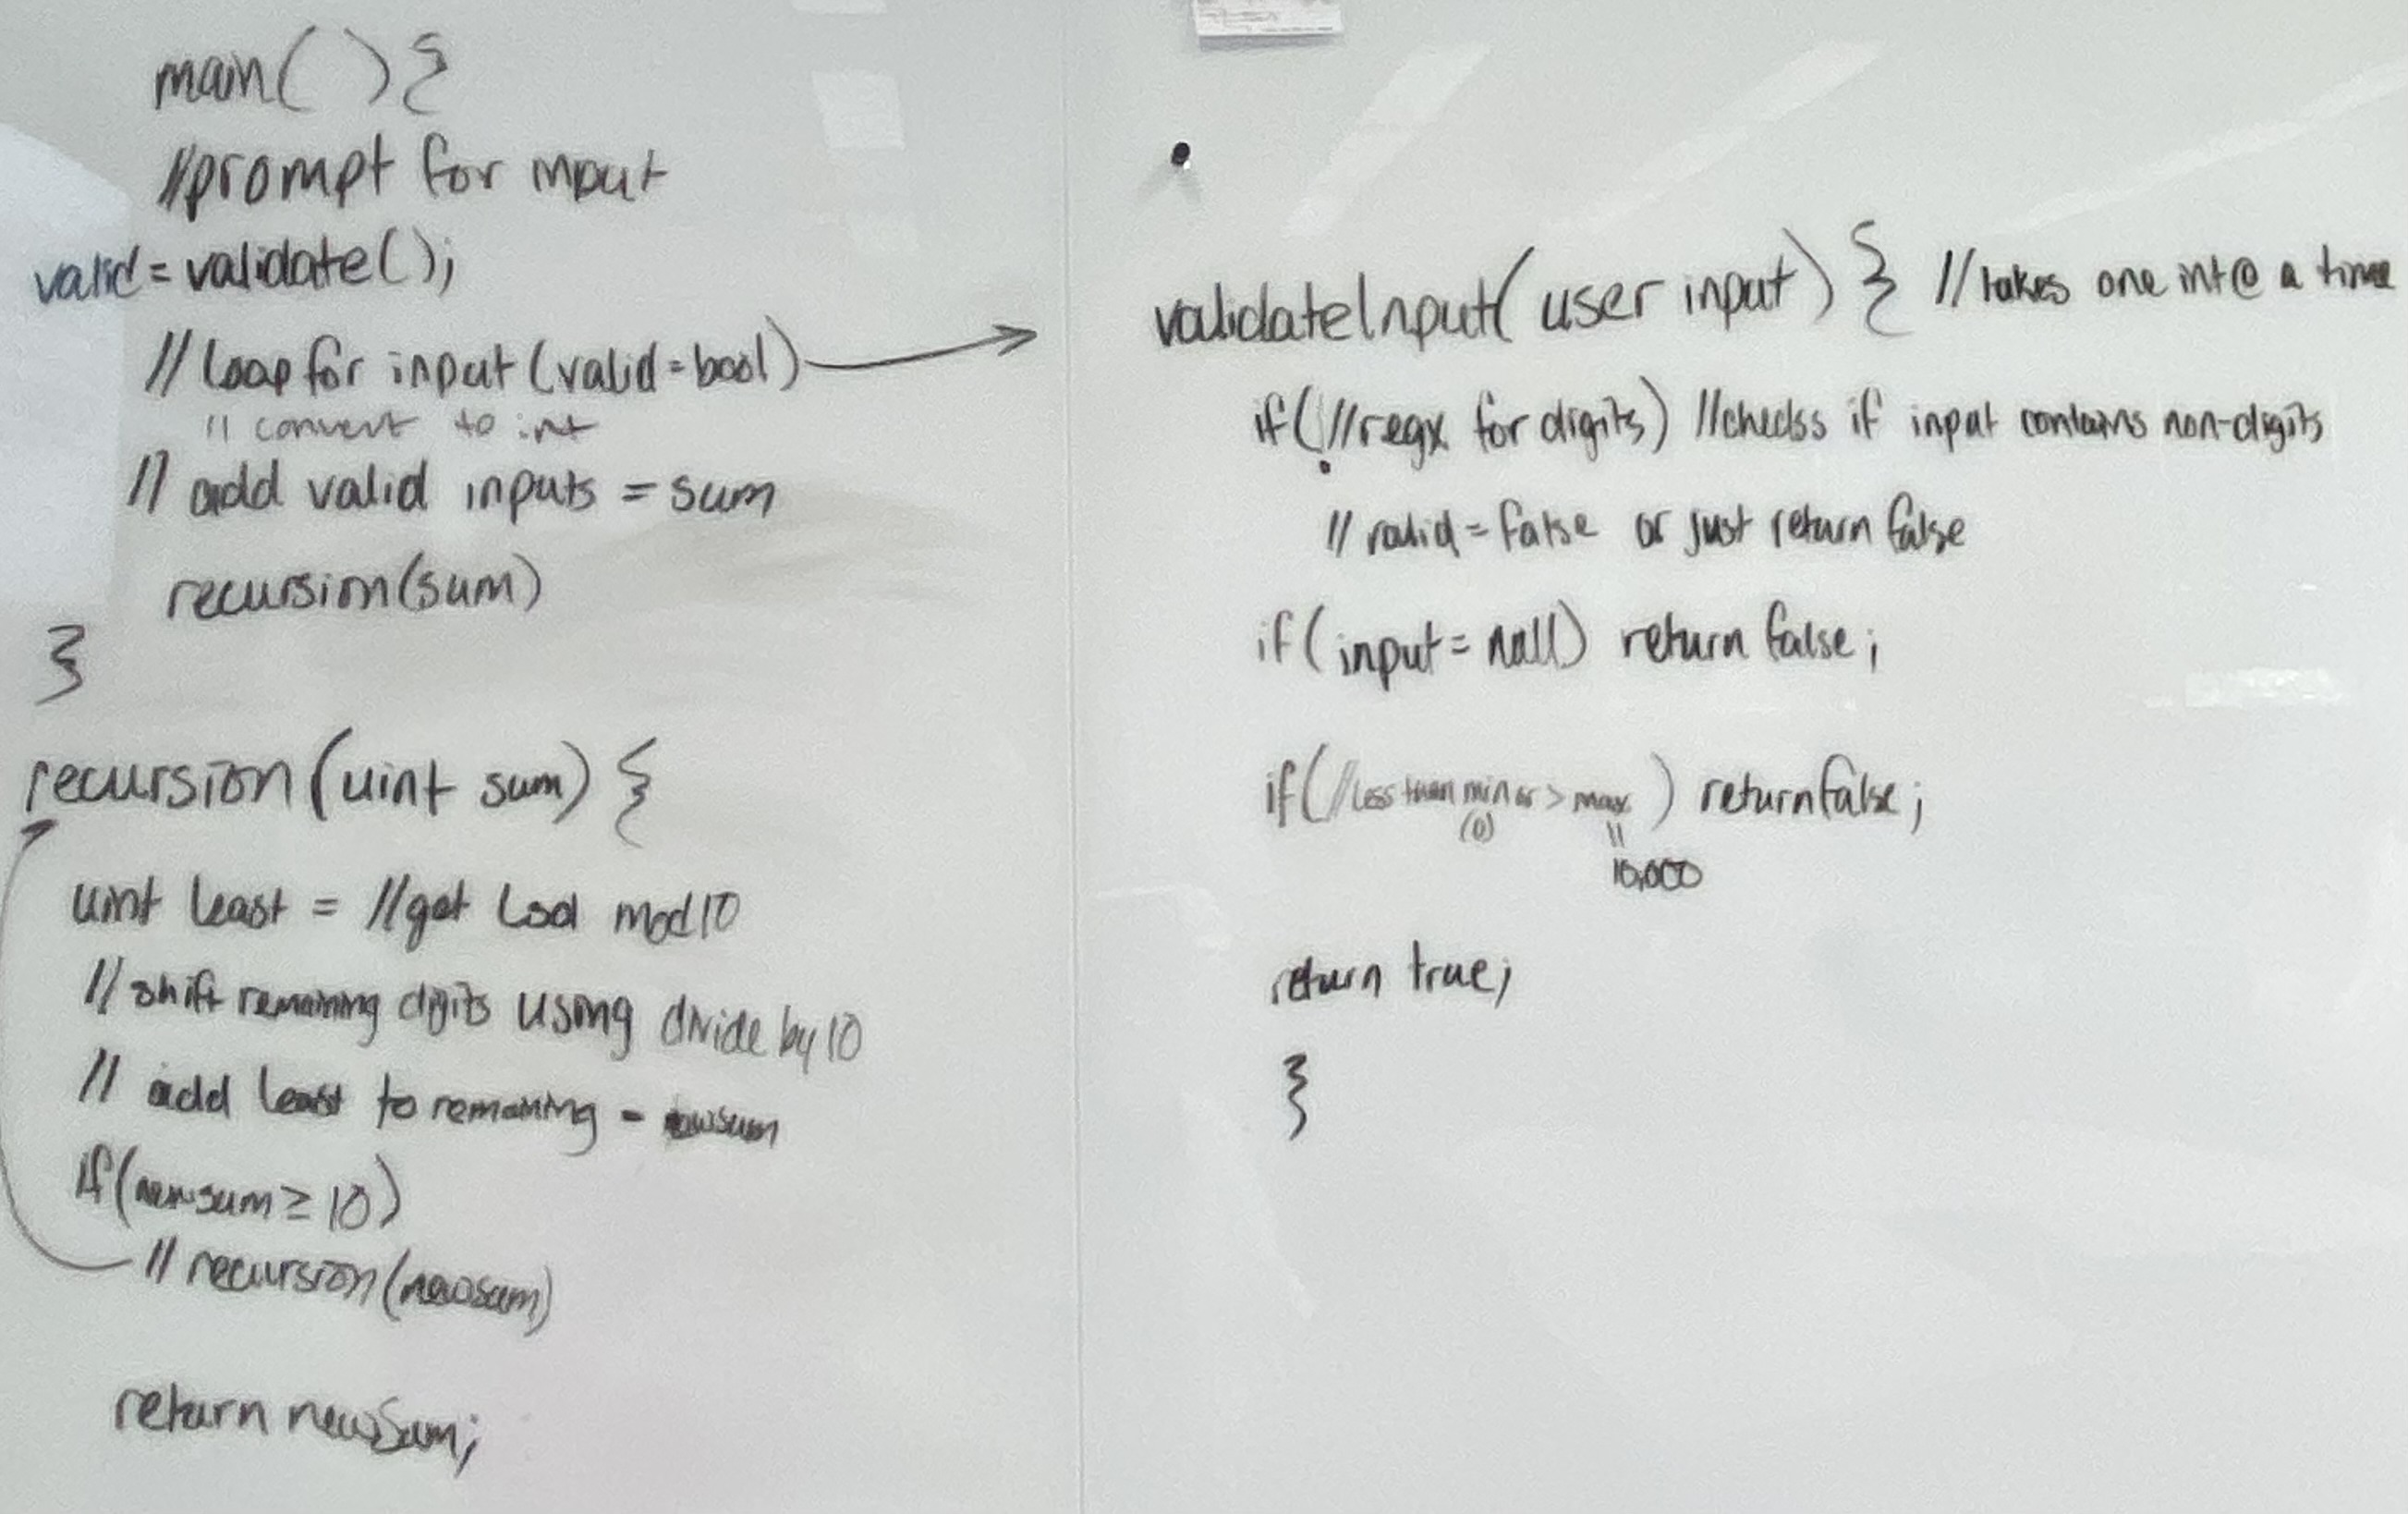 main( ){
//prompt for input
valid = validate();
// Loop for input (valid = bool)
// convert to int
// add valid inputs = sum
recursion(sum)
}
recursion(uint sum) {
uint least = //get Lsd mod 10
// shift remaining digits using divide by 10
// add least to remaining = newsum
if(newsum ≥ 10)
// recursion(newsum)
return newSum;
validateInput( user input) { // takes one int @ a time
if( //regx for digits) //checks if input contains non-digits
// valid = false or just return false
if( input = null) return false;
if( //less than min or > max ) return false;
(0) 11
10,000
return true;
}